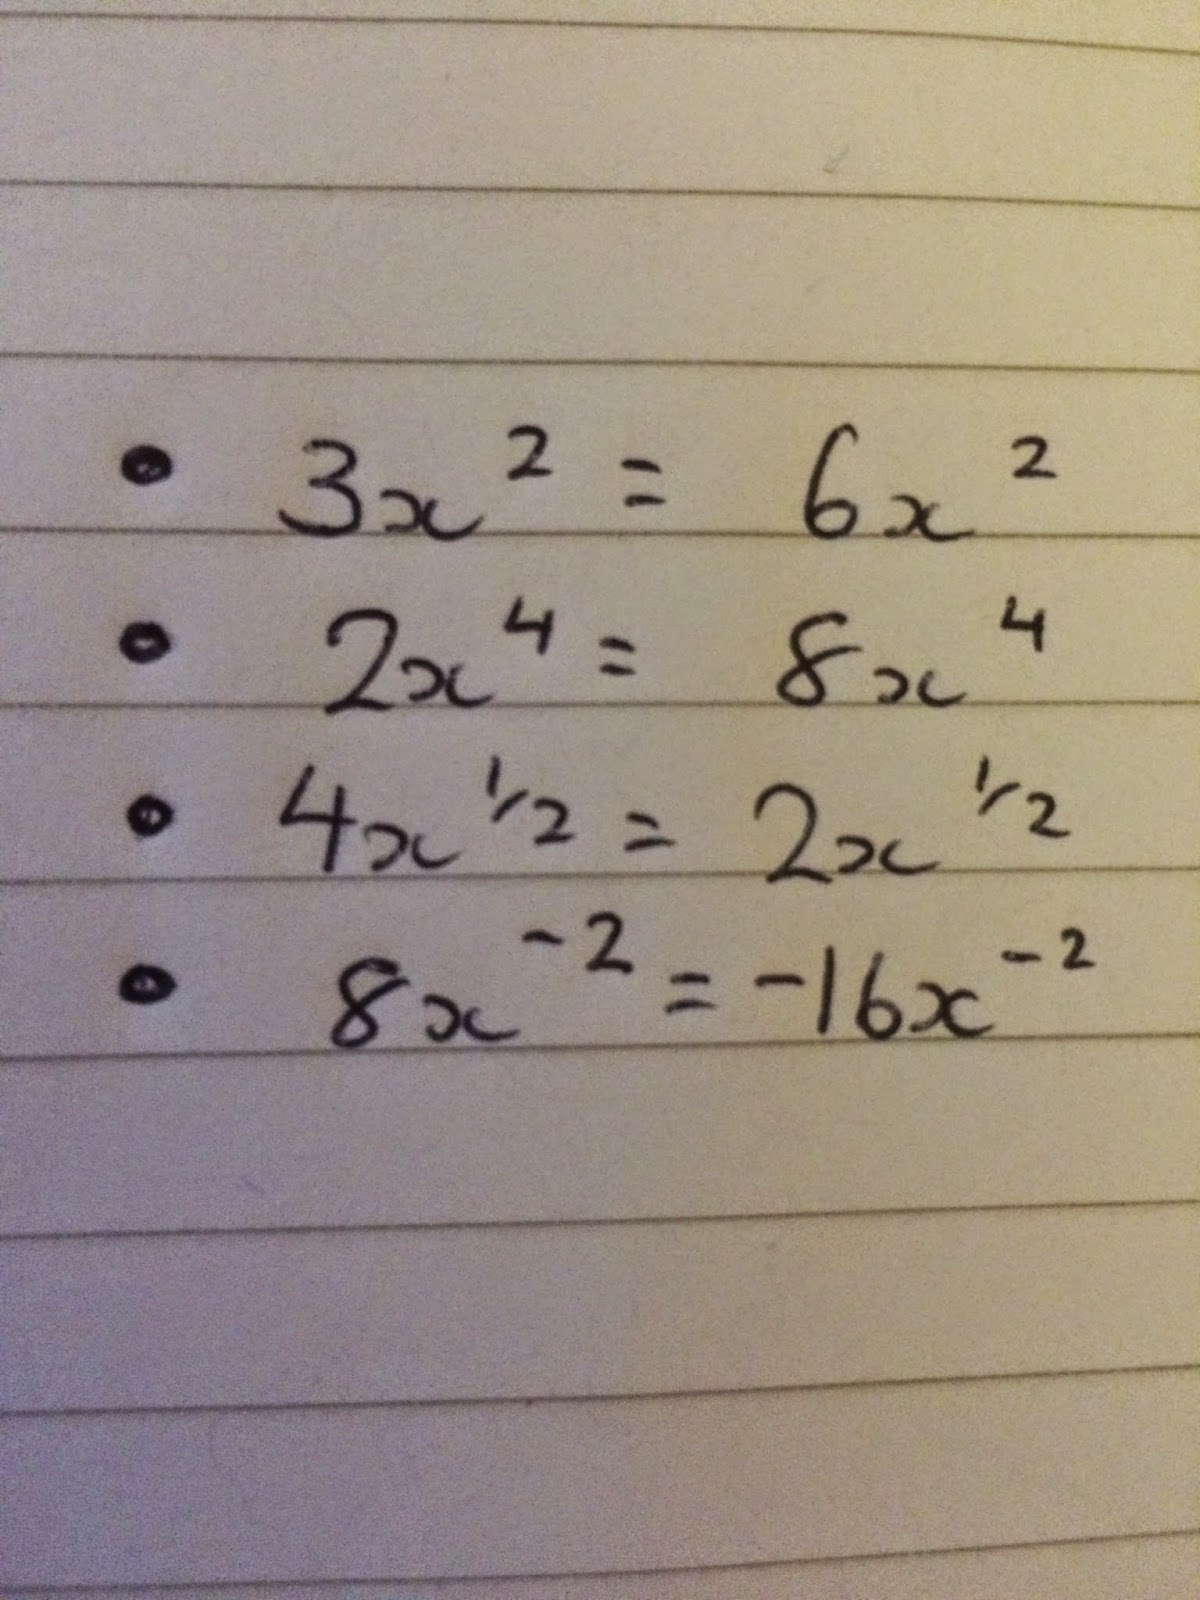 • 3x² = 6x²
• 2x⁴ = 8x⁴
• 4x^1/2 = 2x^1/2
• 8x⁻² = -16x⁻²